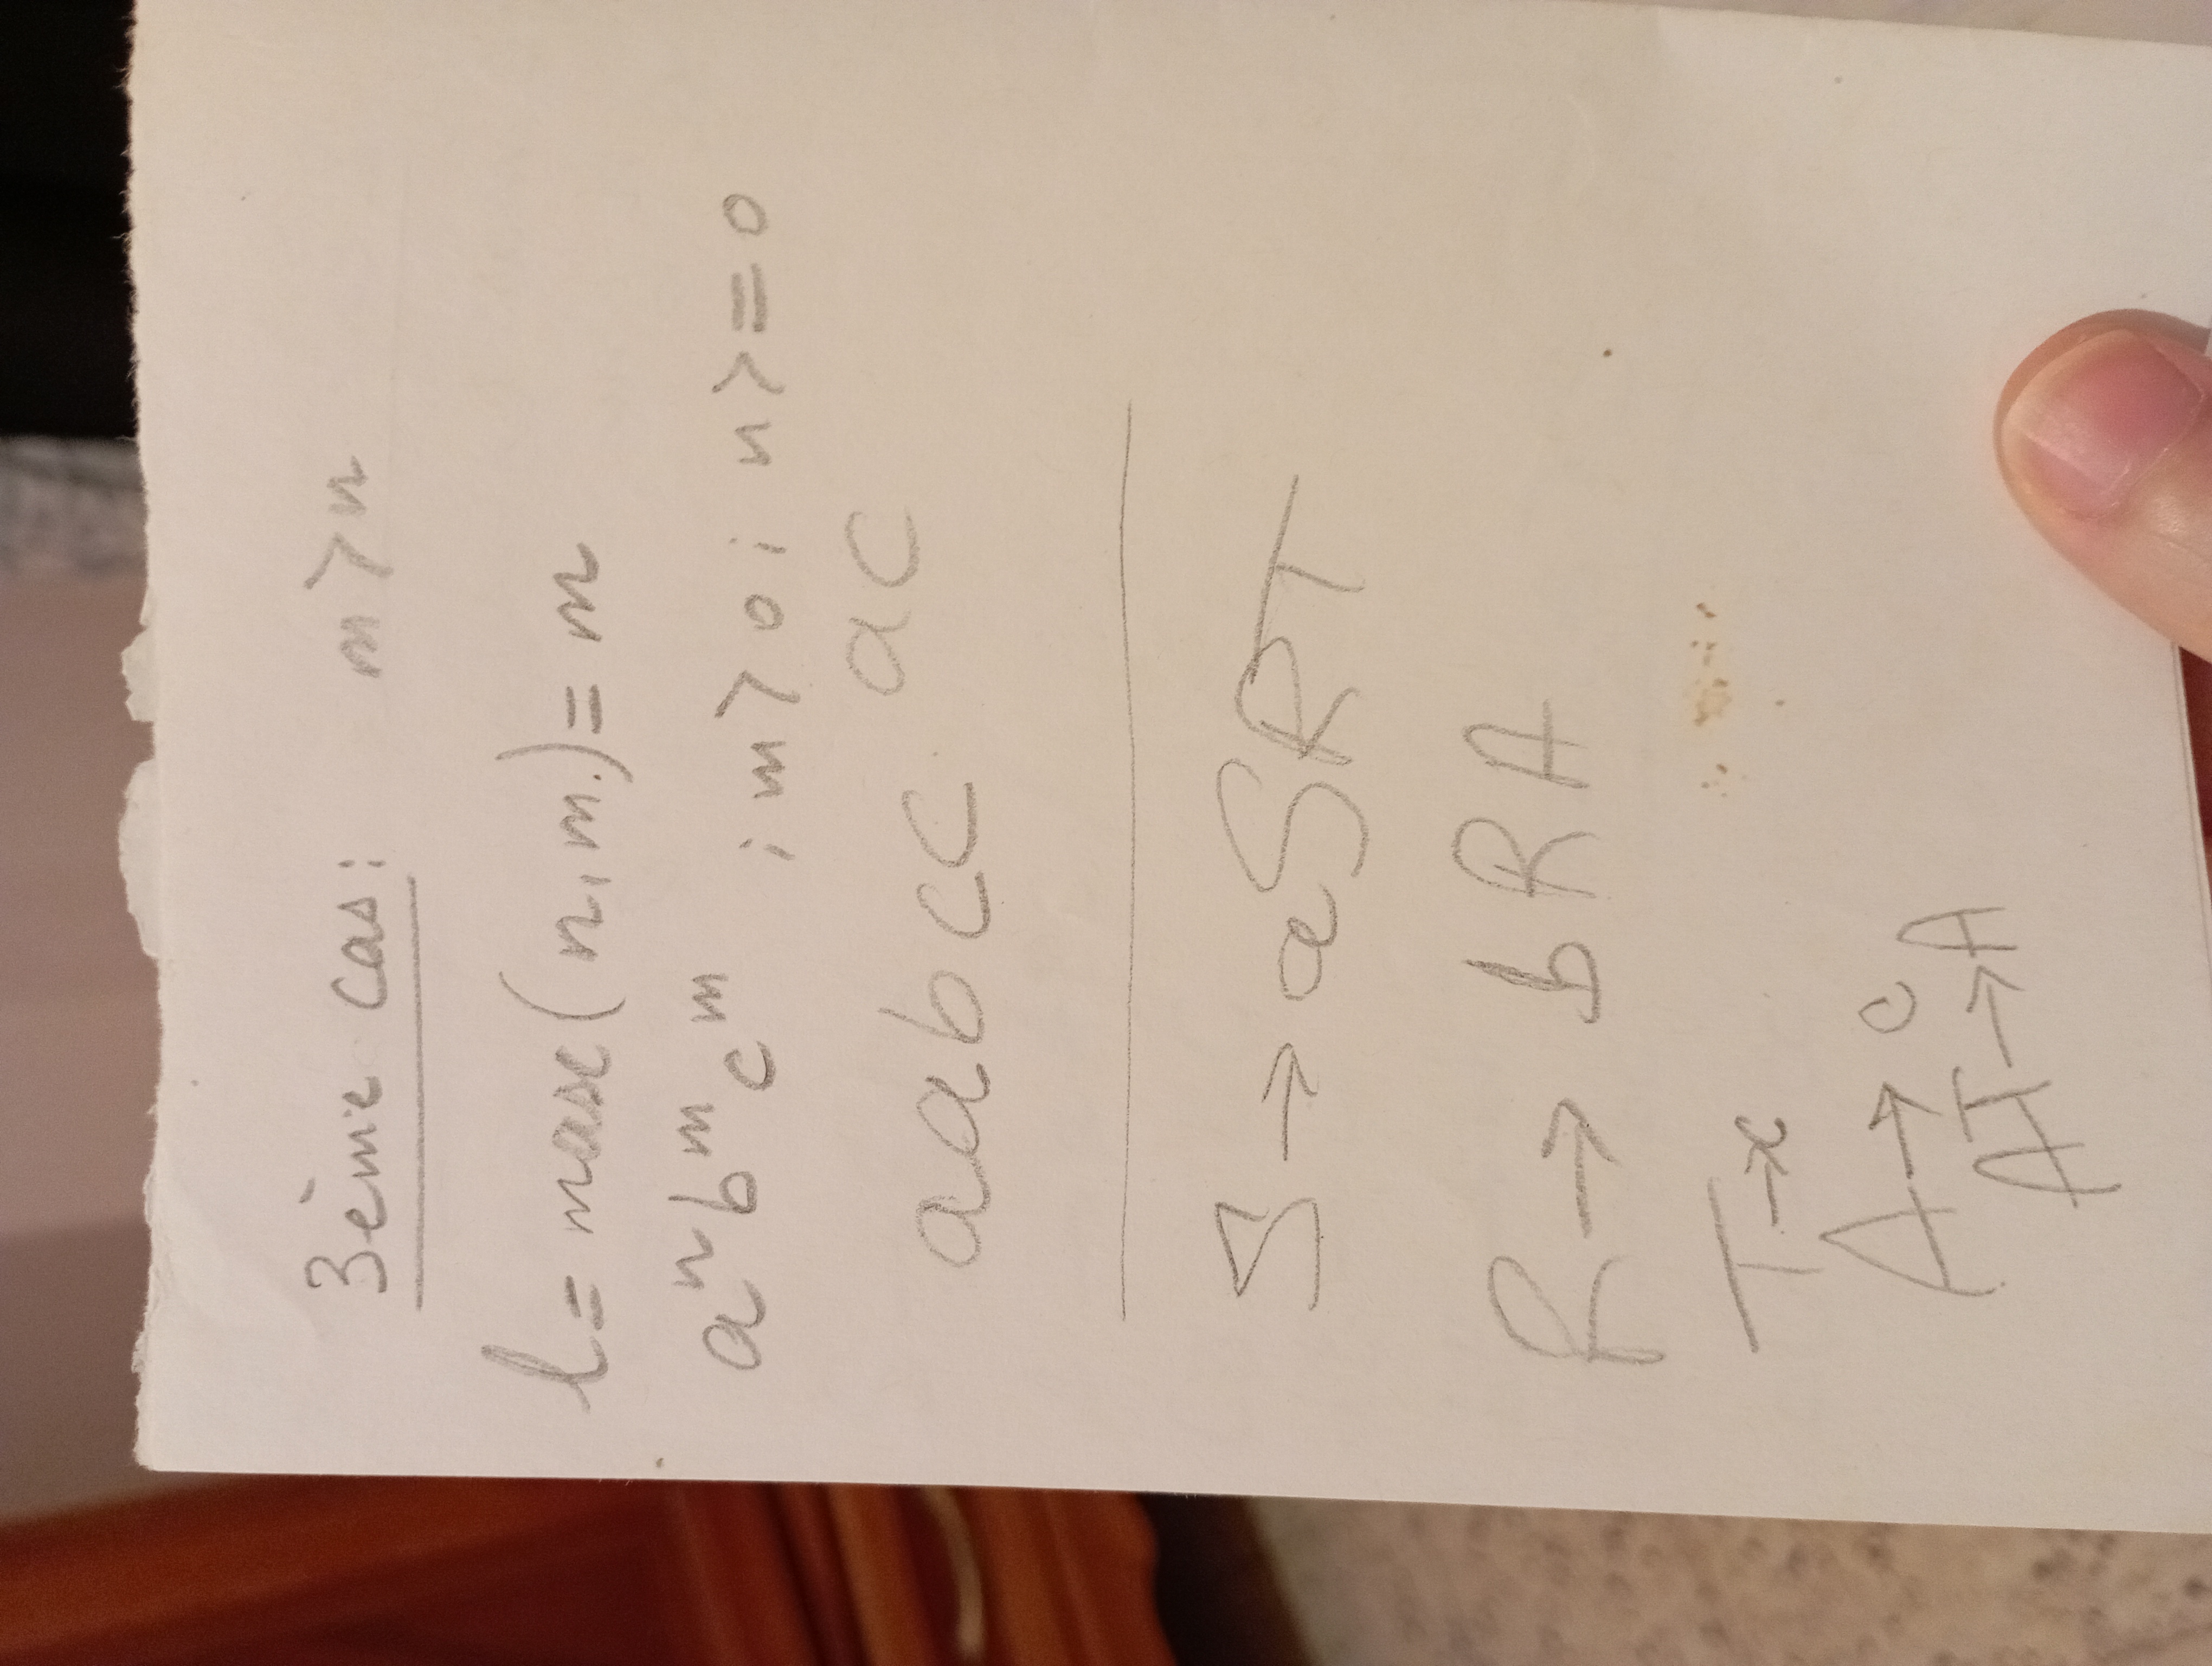 3ème cas: m > n
l = max(n, m.) = m
aⁿ bᵐ cᵐ ; m > 0 ; n >= 0
ac
aabcc
S → aSRT
R → bRA
T → c
A → c
AT → A